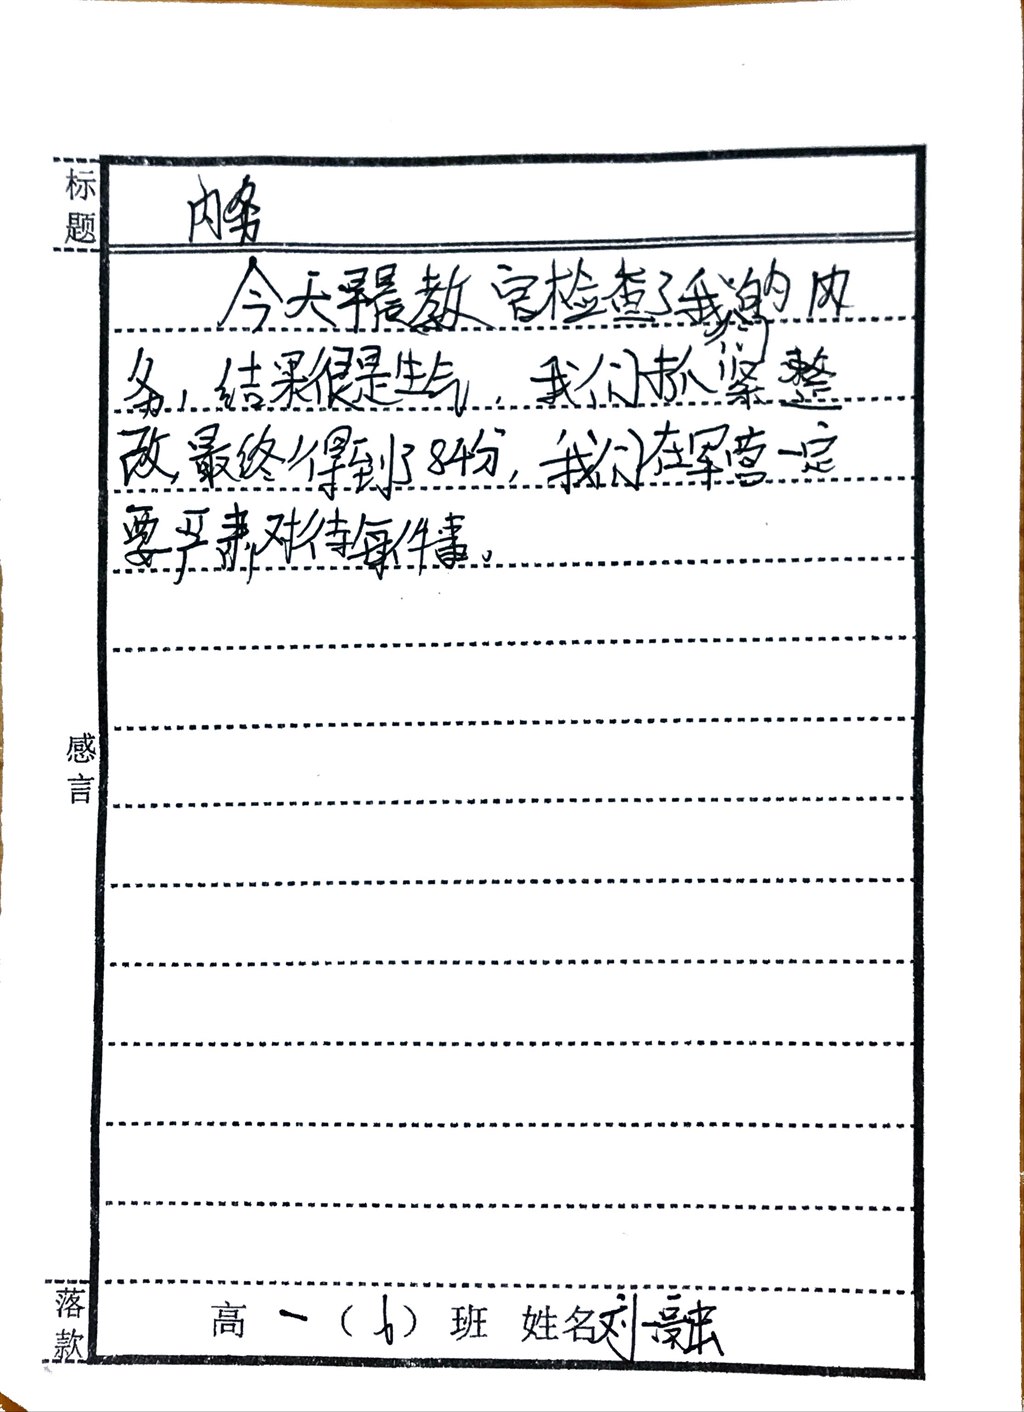 标题
内务
今天早晨教官检查了我们的内
务，结果很是生气，我们抓紧整
改，最终得到了84分，我们在军营一定
要严肃对待每件事。
感言
落款
高一（6）班 姓名刘融